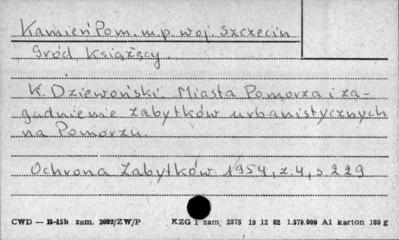 Kamień Pom. m.p. woj. Szczecin
Gród książęcy.
K. Dziewoński Miasta Pomorza i za-
gadnienie zabytków urbanistycznych
na Pomorzu.
Ochrona Zabytków 1954, z. 4, s. 229
CWD — B-15b zam. 2002/ZW/P KZG 1 zam. 2375 19 12 62 1.570.000 A1 karton 180 g